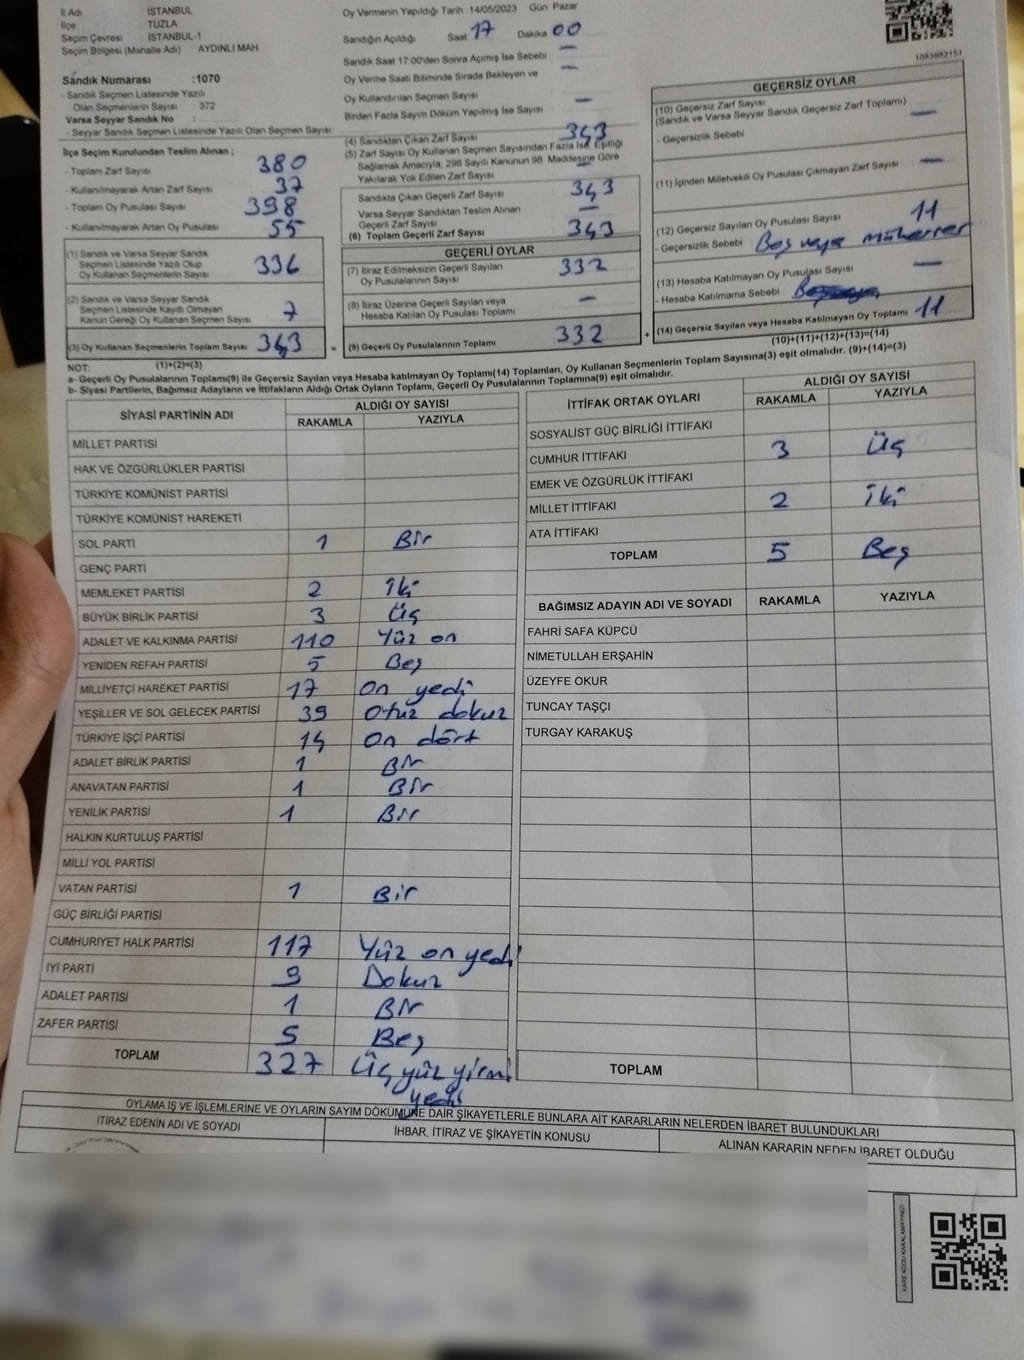 İl Adı İSTANBUL
İlçe TUZLA
Seçim Çevresi İSTANBUL-1
Seçim Bölgesi (Mahalle Adı) AYDINLI MAH
Sandık Numarası :1070
- Sandık Seçmen Listesinde Yazılı
Olan Seçmenlerin Sayısı 372
Varsa Seyyar Sandık No
- Seyyar Sandık Seçmen Listesinde Yazılı Olan Seçmen Sayısı
İlçe Seçim Kurulundan Teslim Alınan ;
- Toplam Zarf Sayısı 380
- Kullanılmayarak Artan Zarf Sayısı 37
- Toplam Oy Pusulası Sayısı 398
- Kullanılmayarak Artan Oy Pusulası 55
(1) Sandık ve Varsa Seyyar Sandık
Seçmen Listesinde Yazılı Olup
Oy Kullanan Seçmenlerin Sayısı 336
(2) Sandık ve Varsa Seyyar Sandık
Seçmen Listesinde Kayıtlı Olmayan
Kanun Gereği Oy Kullanan Seçmen Sayısı 7
(3) Oy Kullanan Seçmenlerin Toplam Sayısı 343
(1)+(2)=(3)
Oy Vermenin Yapıldığı Tarih :14/05/2023 Gün Pazar
Sandığın Açıldığı Saat 17 Dakika 00
Sandık Saat 17:00'den Sonra Açılmış İse Sebebi —
Oy Verme Saati Bitiminde Sırada Bekleyen ve —
Oy Kullandırılan Seçmen Sayısı
Birden Fazla Sayım Döküm Yapılmış İse Sayısı —
(4) Sandıktan Çıkan Zarf Sayısı 343
(5) Zarf Sayısı Oy Kullanan Seçmen Sayısından Fazla İse, Eşitliği
Sağlamak Amacıyla, 298 Sayılı Kanunun 98. Maddesine Göre
Yakılarak Yok Edilen Zarf Sayısı —
Sandıkta Çıkan Geçerli Zarf Sayısı 343
Varsa Seyyar Sandıktan Teslim Alınan
Geçerli Zarf Sayısı —
(6) Toplam Geçerli Zarf Sayısı 343
GEÇERLİ OYLAR
(7) İtiraz Edilmeksizin Geçerli Sayılan
Oy Pusulalarının Sayısı 332
(8) İtiraz Üzerine Geçerli Sayılan veya
Hesaba Katılan Oy Pusulası Toplamı —
= (9) Geçerli Oy Pusulalarının Toplamı 332 +
1093982151
GEÇERSİZ OYLAR
(10) Geçersiz Zarf Sayısı
(Sandık ve Varsa Seyyar Sandık Geçersiz Zarf Toplamı) —
- Geçersizlik Sebebi
(11) İçinden Milletvekili Oy Pusulası Çıkmayan Zarf Sayısı —
(12) Geçersiz Sayılan Oy Pusulası Sayısı 11
- Geçersizlik Sebebi Boş veya mükerrer
(13) Hesaba Katılmayan Oy Pusulası Sayısı —
- Hesaba Katılmama Sebebi
(14) Geçersiz Sayılan veya Hesaba Katılmayan Oy Toplamı 11
(10)+(11)+(12)+(13)=(14)
NOT:
a- Geçerli Oy Pusulalarının Toplamı(9) ile Geçersiz Sayılan veya Hesaba katılmayan Oy Toplamı(14) Toplamları, Oy Kullanan Seçmenlerin Toplam Sayısına(3) eşit olmalıdır. (9)+(14)=(3)
b- Siyasi Partilerin, Bağımsız Adayların ve İttifakların Aldığı Ortak Oyların Toplamı, Geçerli Oy Pusulalarının Toplamına(9) eşit olmalıdır.
SİYASİ PARTİNİN ADI ALDIĞI OY SAYISI
RAKAMLA YAZIYLA
MİLLET PARTİSİ
HAK VE ÖZGÜRLÜKLER PARTİSİ
TÜRKİYE KOMÜNİST PARTİSİ
TÜRKİYE KOMÜNİST HAREKETİ
SOL PARTİ 1 Bir
GENÇ PARTİ
MEMLEKET PARTİSİ 2 İki
BÜYÜK BİRLİK PARTİSİ 3 Üç
ADALET VE KALKINMA PARTİSİ 110 Yüz on
YENİDEN REFAH PARTİSİ 5 Beş
MİLLİYETÇİ HAREKET PARTİSİ 17 On yedi
YEŞİLLER VE SOL GELECEK PARTİSİ 39 Otuz dokuz
TÜRKİYE İŞÇİ PARTİSİ 14 On dört
ADALET BİRLİK PARTİSİ 1 Bir
ANAVATAN PARTİSİ 1 Bir
YENİLİK PARTİSİ 1 Bir
HALKIN KURTULUŞ PARTİSİ
MİLLİ YOL PARTİSİ
VATAN PARTİSİ 1 Bir
GÜÇ BİRLİĞİ PARTİSİ
CUMHURİYET HALK PARTİSİ 117 Yüz on yedi
İYİ PARTİ 9 Dokuz
ADALET PARTİSİ 1 Bir
ZAFER PARTİSİ 5 Beş
TOPLAM 327 Üç yüz yirmi
yedi
İTTİFAK ORTAK OYLARI ALDIĞI OY SAYISI
RAKAMLA YAZIYLA
SOSYALİST GÜÇ BİRLİĞİ İTTİFAKI
CUMHUR İTTİFAKI 3 Üç
EMEK VE ÖZGÜRLÜK İTTİFAKI
MİLLET İTTİFAKI 2 İki
ATA İTTİFAKI
TOPLAM 5 Beş
BAĞIMSIZ ADAYIN ADI VE SOYADI RAKAMLA YAZIYLA
FAHRİ SAFA KÜPCÜ
NİMETULLAH ERŞAHİN
ÜZEYFE OKUR
TUNCAY TAŞÇI
TURGAY KARAKUŞ
TOPLAM
OYLAMA İŞ VE İŞLEMLERİNE VE OYLARIN SAYIM DÖKÜMÜNE DAİR ŞİKAYETLERLE BUNLARA AİT KARARLARIN NELERDEN İBARET BULUNDUKLARI
İTİRAZ EDENİN ADI VE SOYADI İHBAR, İTİRAZ VE ŞİKAYETİN KONUSU ALINAN KARARIN NEDEN İBARET OLDUĞU
KARE KODU KARALAMAYINIZ!